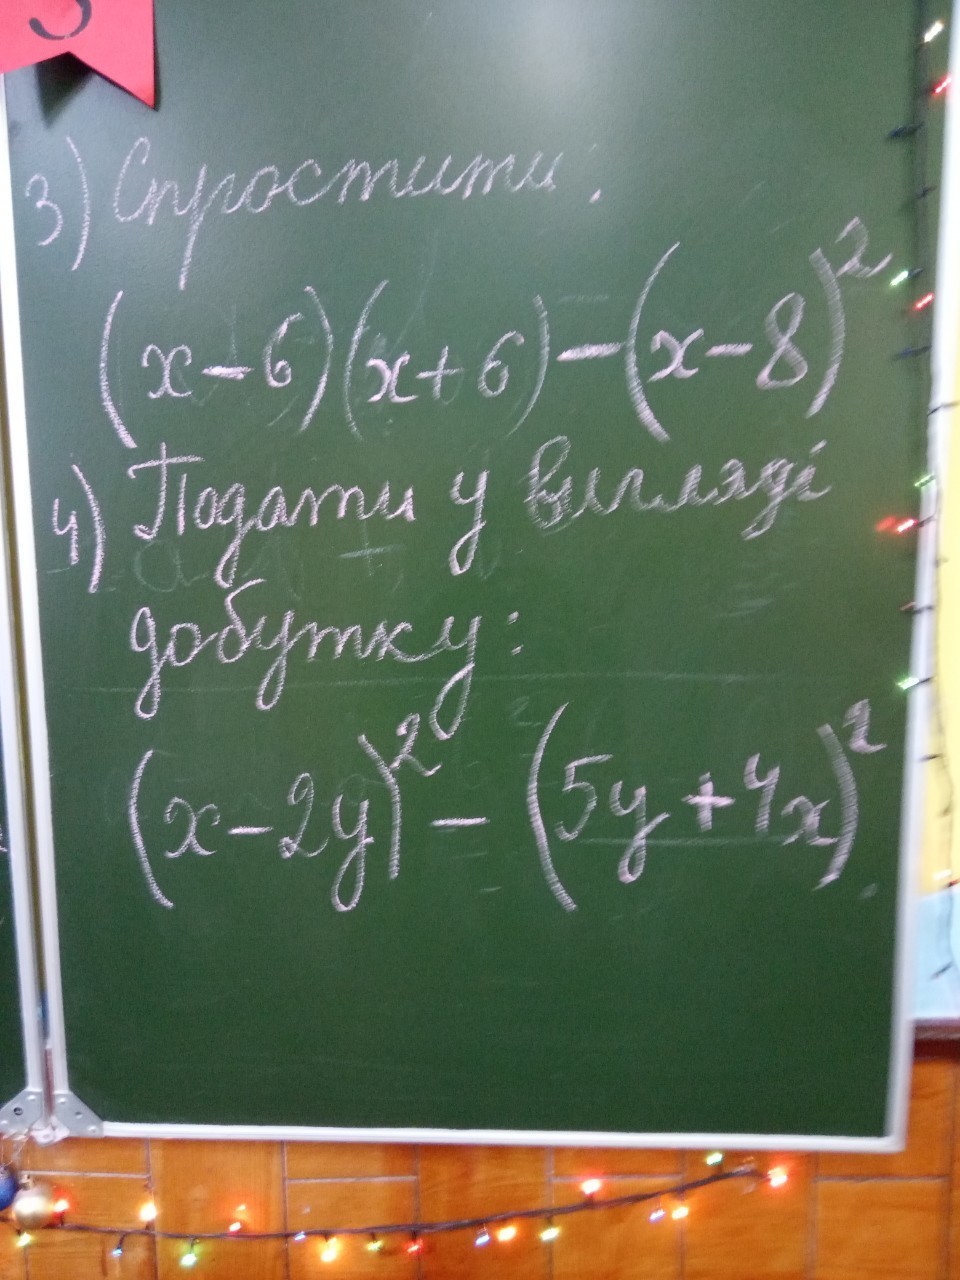 3
3) Спростити:
(x-6)(x+6)-(x-8)²
4) Подати у вигляді
добутку:
(x-2y)² - (5y+4x)²